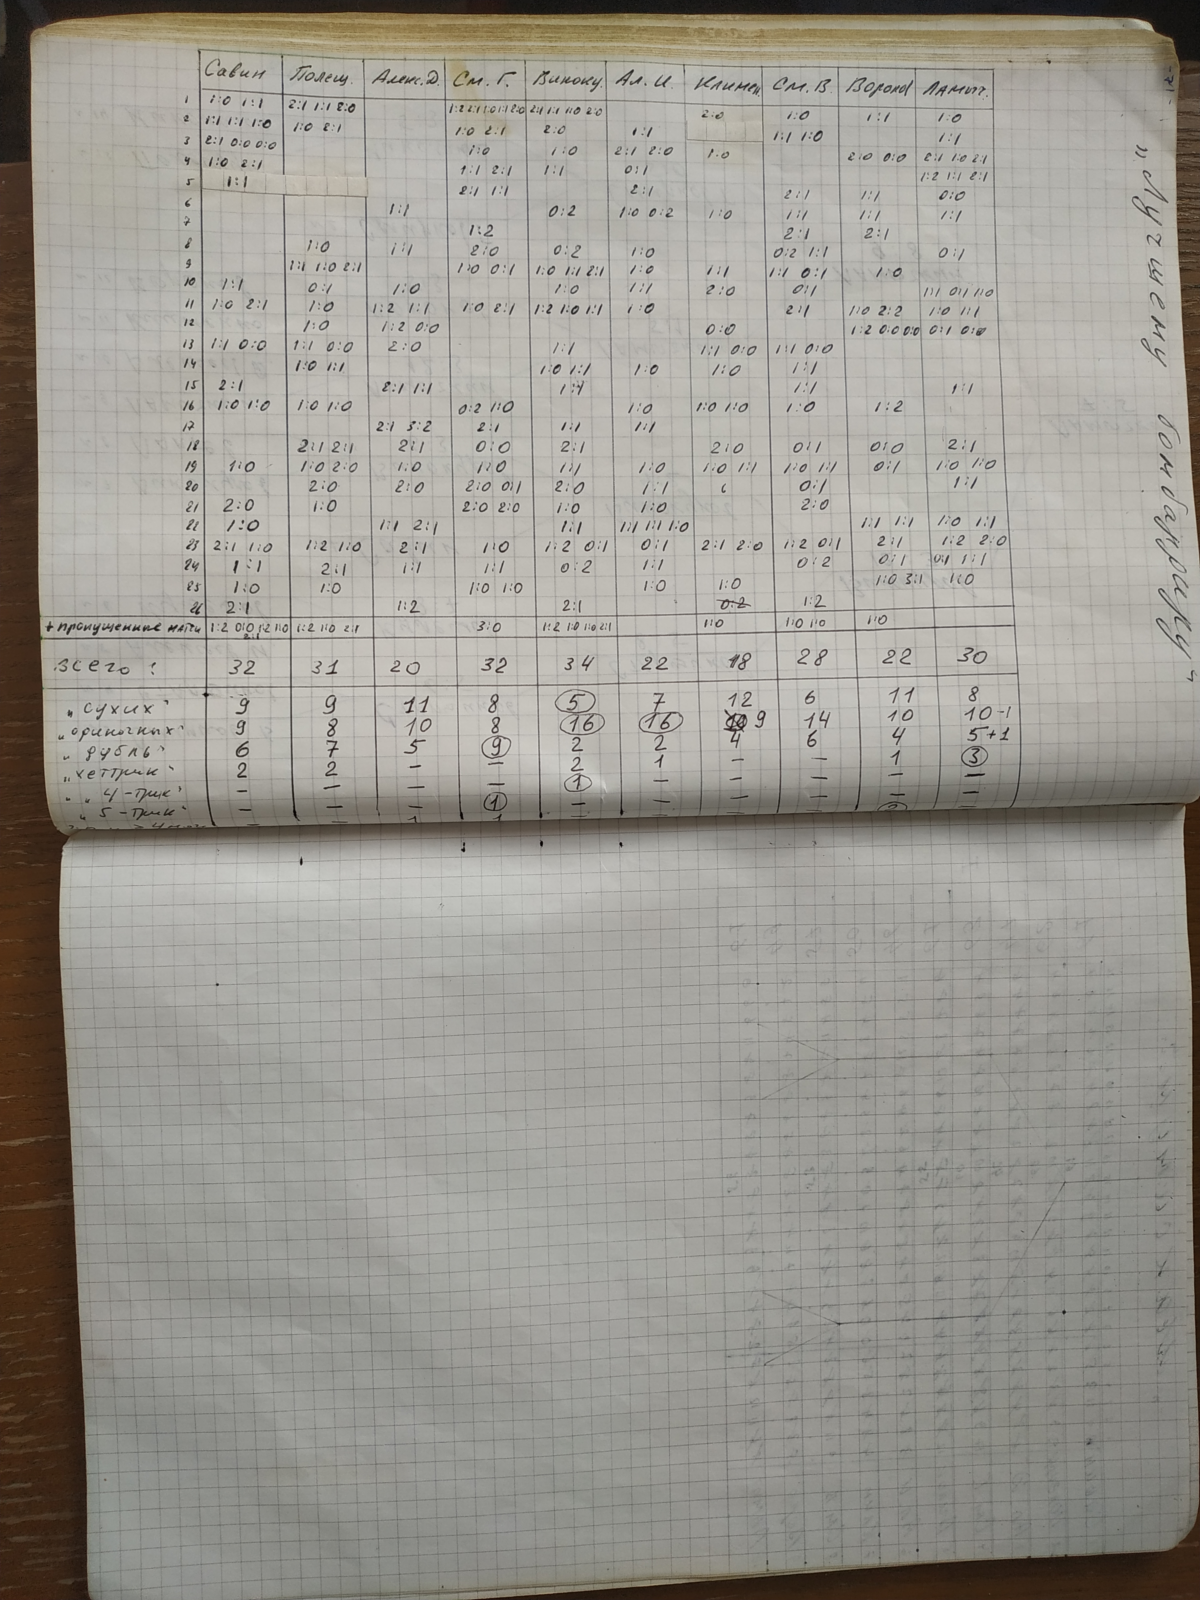 "Лучшему бомбардиру"
Савин Полещ. Алекс.Д. См. Г. Виноку. Ал. И. Климен. См. В. Ворона Ламыт.
1 1:0 1:1 2:1 1:1 2:0 2:0 1:0 1:1 1:0
2 1:1 1:1 1:0 1:0 2:1 1:0 2:1 2:0 1:1 1:1 1:0 1:1
3 2:1 0:0 0:0 1:0 1:0 2:1 2:0 1:0 2:0 0:0 2:1 1:0 2:1
4 1:0 2:1 1:1 2:1 1:1 0:1 1:2 1:1 2:1
5 1:1 2:1 1:1 2:1 2:1 1:1 0:0
6 1:1 0:2 1:0 0:2 1:0 1:1 1:1 1:1
7 1:2 2:1 2:1
8 1:0 1:1 2:0 0:2 1:0 0:2 1:1 0:1
9 1:1 1:0 2:1 1:0 0:1 1:0 1:1 2:1 1:0 1:1 1:1 0:1 1:0
10 1:1 0:1 1:0 1:0 1:1 2:0 0:1 1:1 0:1 1:0
11 1:0 2:1 1:0 1:2 1:1 1:0 2:1 1:2 1:0 1:1 1:0 2:1 1:0 2:2 1:0 1:1
12 1:0 1:2 0:0 0:0 1:2 0:0 0:0 0:1 0:0
13 1:1 0:0 1:1 0:0 2:0 1:1 1:1 0:0 1:1 0:0
14 1:0 1:1 1:0 1:1 1:0 1:0 1:1
15 2:1 2:1 1:1 1:1 1:1
16 1:0 1:0 1:0 1:0 0:2 1:0 1:0 1:0 1:0 1:0 1:2
17 2:1 3:2 2:1 1:1 1:1
18 2:1 2:1 2:1 0:0 2:1 2:0 0:1 0:0 2:1
19 1:0 1:0 2:0 1:0 1:0 1:1 1:0 1:0 1:1 1:0 1:1 0:1 1:0 1:0
20 2:0 2:0 2:0 0:1 2:0 1:1 0:1 1:1
21 2:0 1:0 2:0 2:0 1:0 1:0 2:0
22 1:0 1:1 2:1 1:1 1:1 1:1 1:0 1:1 1:1 1:0 1:1
23 2:1 1:0 1:2 1:0 2:1 1:0 1:2 0:1 0:1 2:1 2:0 1:2 0:1 2:1 1:2 2:0
24 1:1 2:1 1:1 1:1 0:2 1:1 0:2 0:1 0:1 1:1
25 1:0 1:0 1:0 1:0 1:0 1:0 1:0 3:1 1:0
26 2:1 1:2 2:1 0:2 1:2
+ пропущенные матчи 1:2 0:0 1:2 1:0 2:1 1:2 1:0 2:1 3:0 1:2 1:0 1:0 2:1 1:0 1:0 1:0 1:0
всего: 32 31 20 32 34 22 18 28 22 30
"сухих" 9 9 11 8 5 7 12 6 11 8
"одиночных" 9 8 10 8 16 16 9 14 10 10-1
"дубль" 6 7 5 9 2 2 4 6 4 5+1
"хеттрик" 2 2 — — 2 1 — — 1 3
" 4-трик" — — — — 1 — — — — —
" 5-трик" — — — 1 — — — — — —